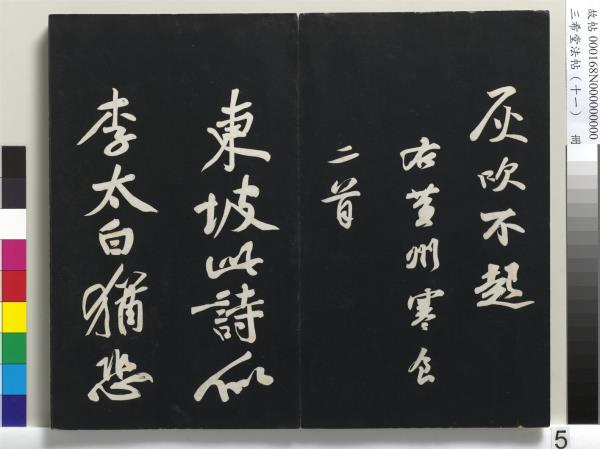 灰吹不起
右黃州寒食
二首
東坡此詩似
李太白猶恐
故帖 000168N000000000
三希堂法帖（十一） 冊
5